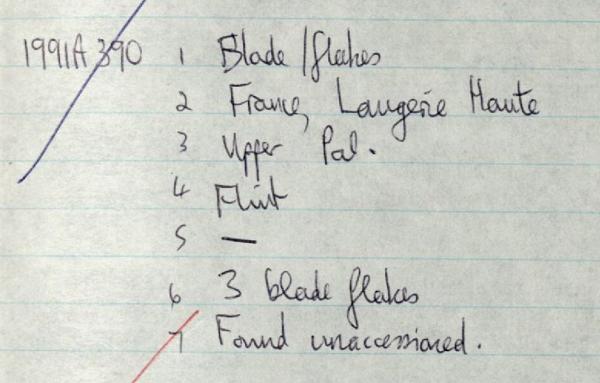 1991A 390 1 Blade/flakes
2 France, Laugerie Haute
3 Upper Pal.
4 Flint
5 —
6 3 blade flakes
7 Found unaccessioned.